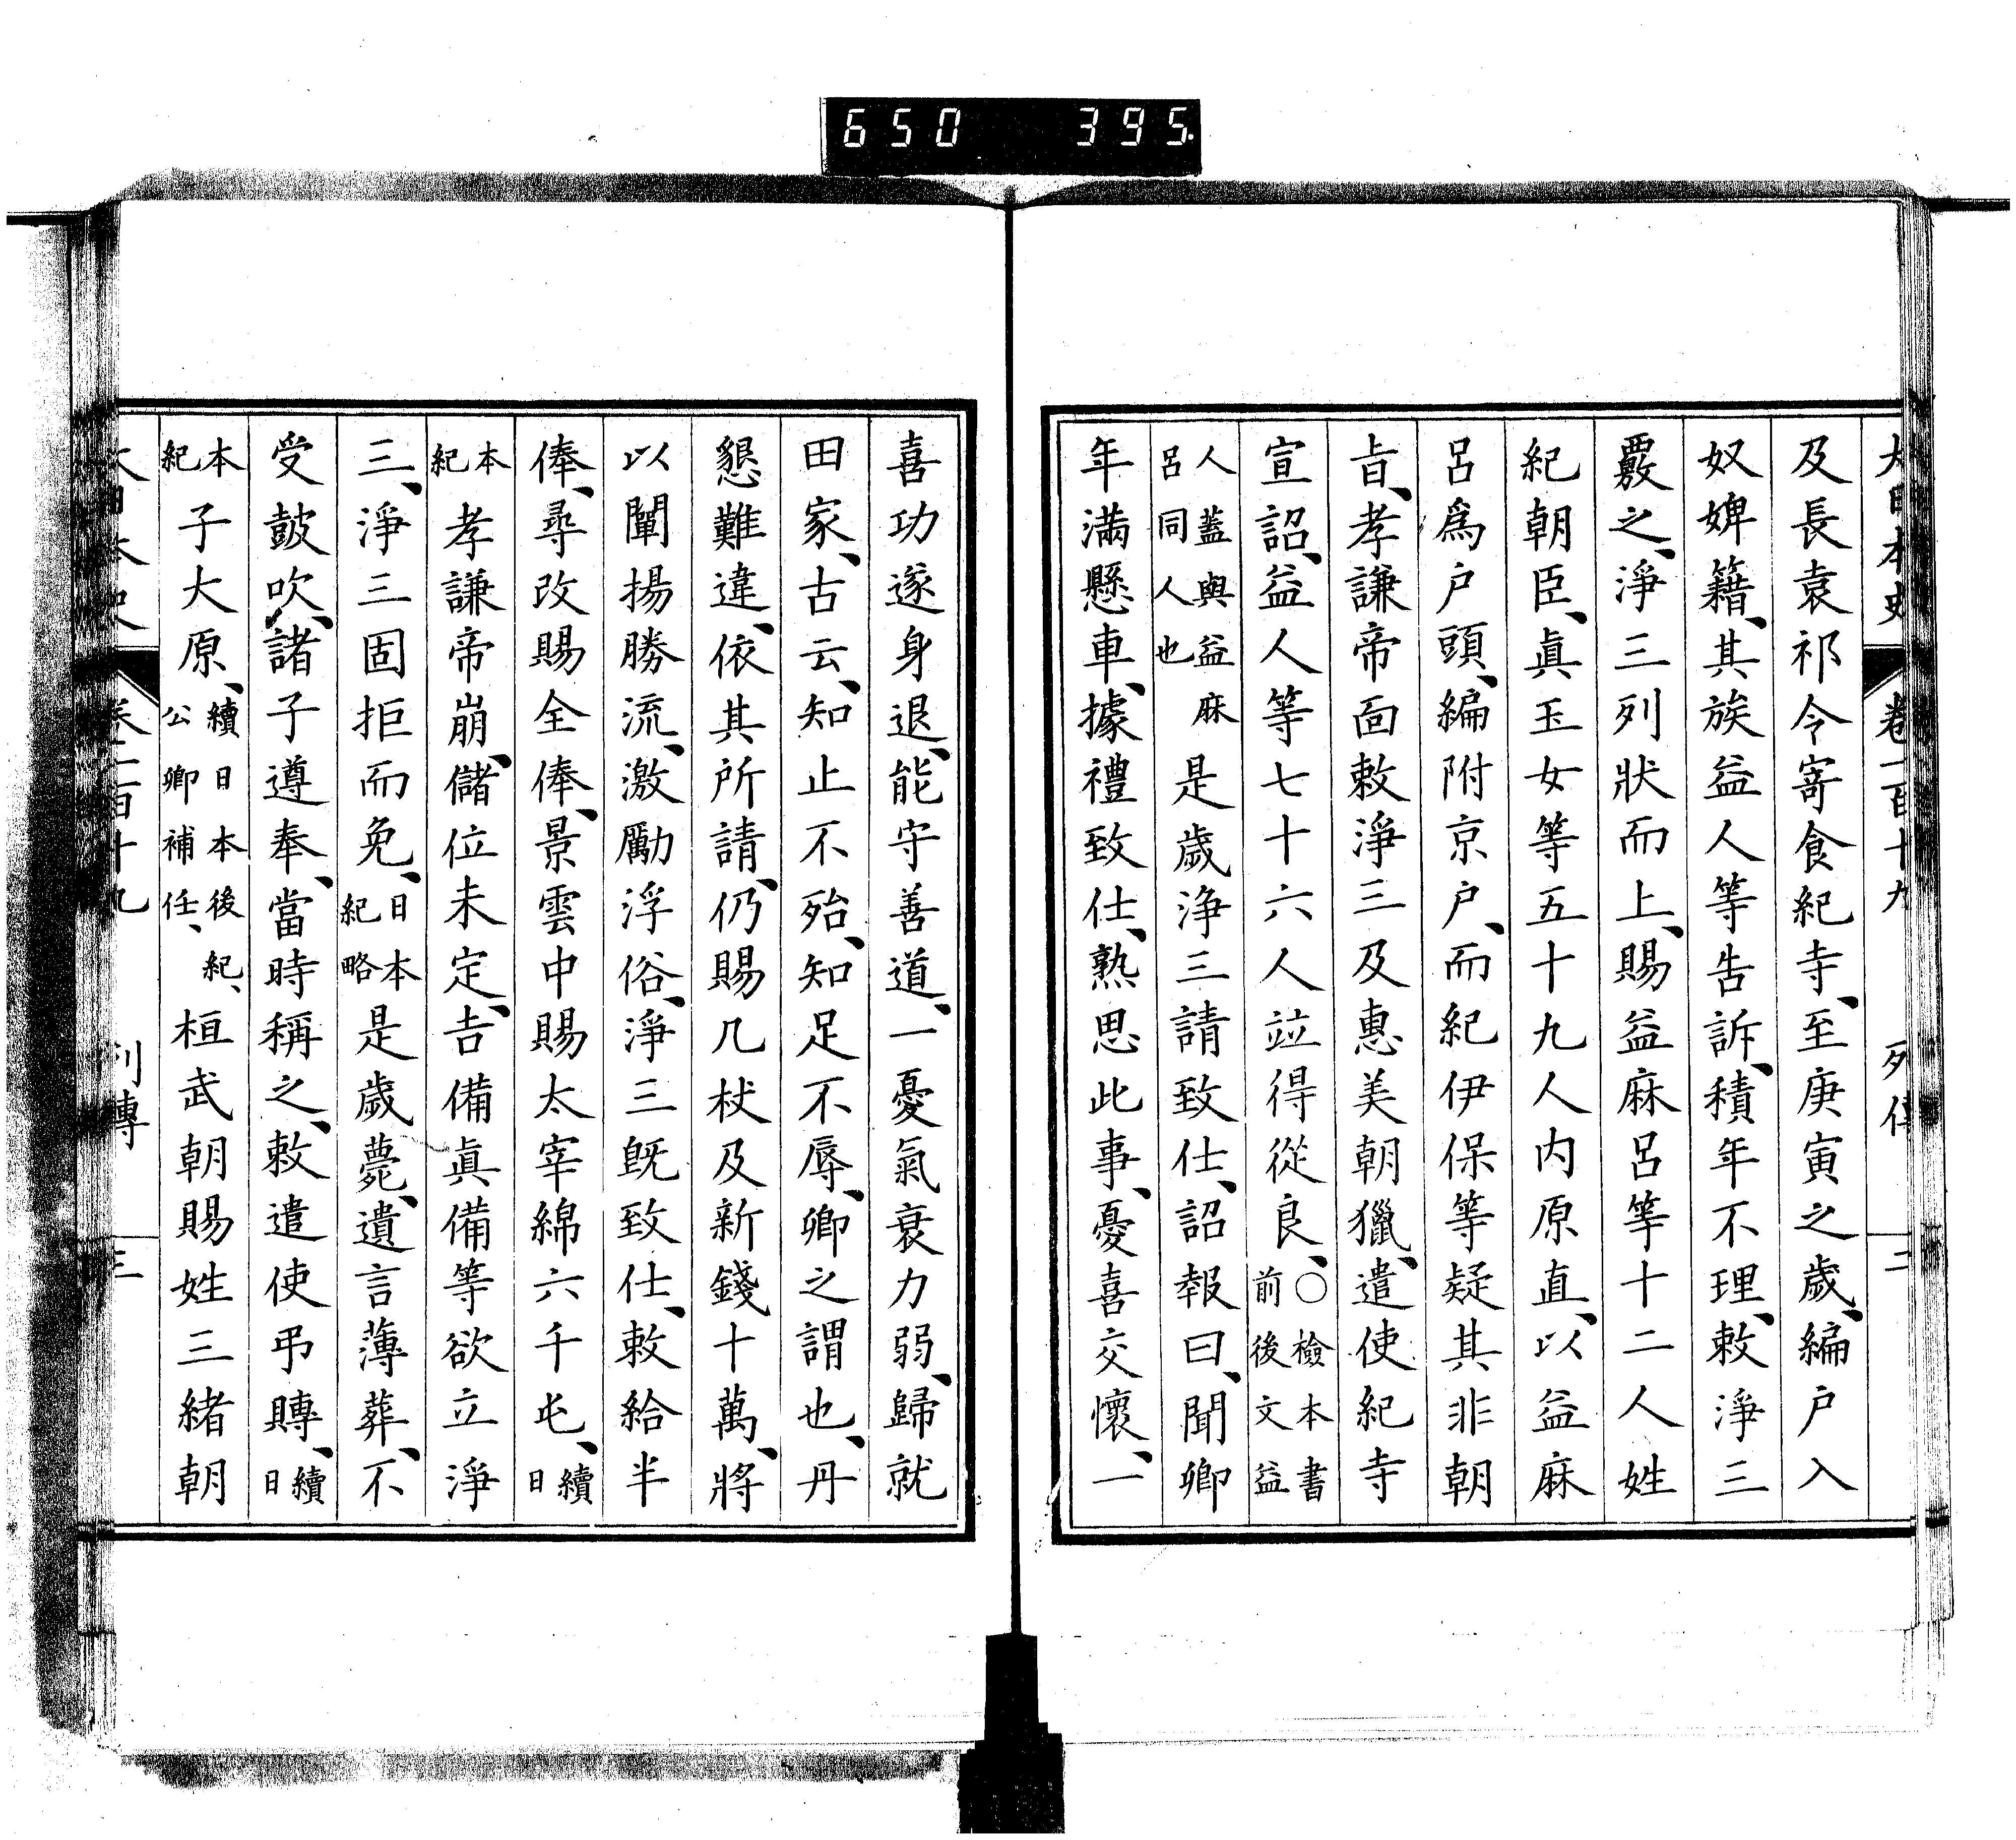 650 395.
大日本史 卷一百十九 列傳 二
及長袁祁令寄食紀寺、至庚寅之歲、編户入
奴婢籍、其族益人等告訴、積年不理、敕淨三
覈之、淨三列狀而上、賜益麻呂等十二人姓
紀朝臣、眞玉女等五十九人內原直、以益麻
呂爲户頭、編附京户、而紀伊保等疑其非朝
旨、孝謙帝面敕淨三及惠美朝獵、遣使紀寺
宣詔、益人等七十六人竝得從良、○檢本書前後文益
人蓋與益麻呂同人也是歲淨三請致仕、詔報曰、聞卿
年滿懸車、據禮致仕、熟思此事、憂喜交懷、一
喜功遂身退、能守善道、一憂氣衰力弱、歸就
田家、古云、知止不殆、知足不辱、卿之謂也、丹
懇難違、依其所請、仍賜几杖及新錢十萬、將
以闡揚勝流、激勵浮俗、淨三既致仕、敕給半
俸、尋改賜全俸、景雲中賜太宰綿六千屯、續日
本紀孝謙帝崩、儲位未定、吉備眞備等欲立淨
三、淨三固拒而免、日本紀略是歲薨、遺言薄葬、不
受鼓吹、諸子遵奉、當時稱之、敕遣使弔賻、續日
本紀子大原、續日本後紀、公卿補任、桓武朝賜姓三緒朝
大日本史 卷一百十九 列傳 三